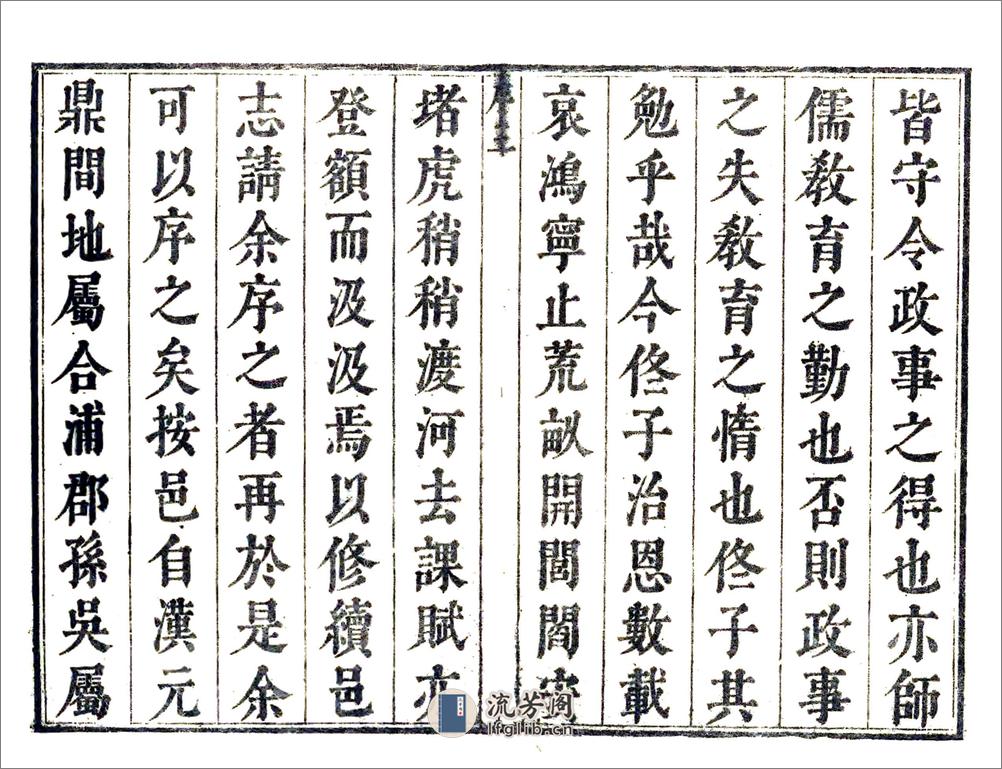 皆守令政事之得也亦師
儒教育之勤也否則政事
之失教育之惰也佟子其
勉乎哉今佟子治恩數載
哀鴻寧止荒畝開閭閻安
序
堵虎稍稍渡河去課賦亦
登額而汲汲焉以修續邑
志請余序之者再於是余
可以序之矣按邑自漢元
鼎間地屬合浦郡孫吳屬
流芳阁
lfglib.cn